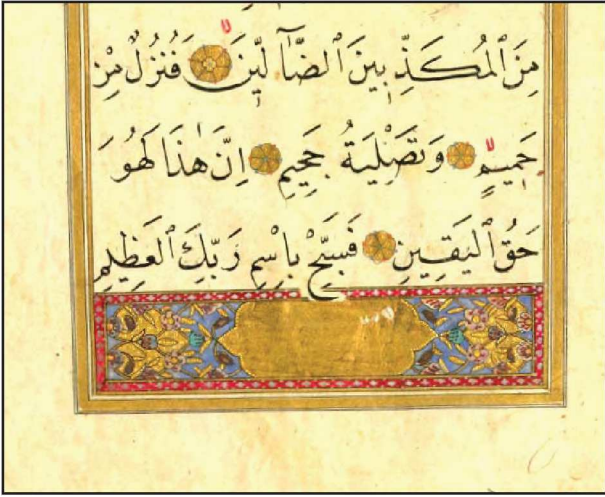 مِنَ ٱلْمُكَذِّبِينَ ٱلضَّآلِّينَ فَنُزُلٌ مِنْ
حَمِيمٍ وَتَصْلِيَةُ جَحِيمٍ اِنَّ هٰذَا لَهُوَ
حَقُّ ٱلْيَقِينِ فَسَبِّحْ بِاسْمِ رَبِّكَ ٱلْعَظِيمِ